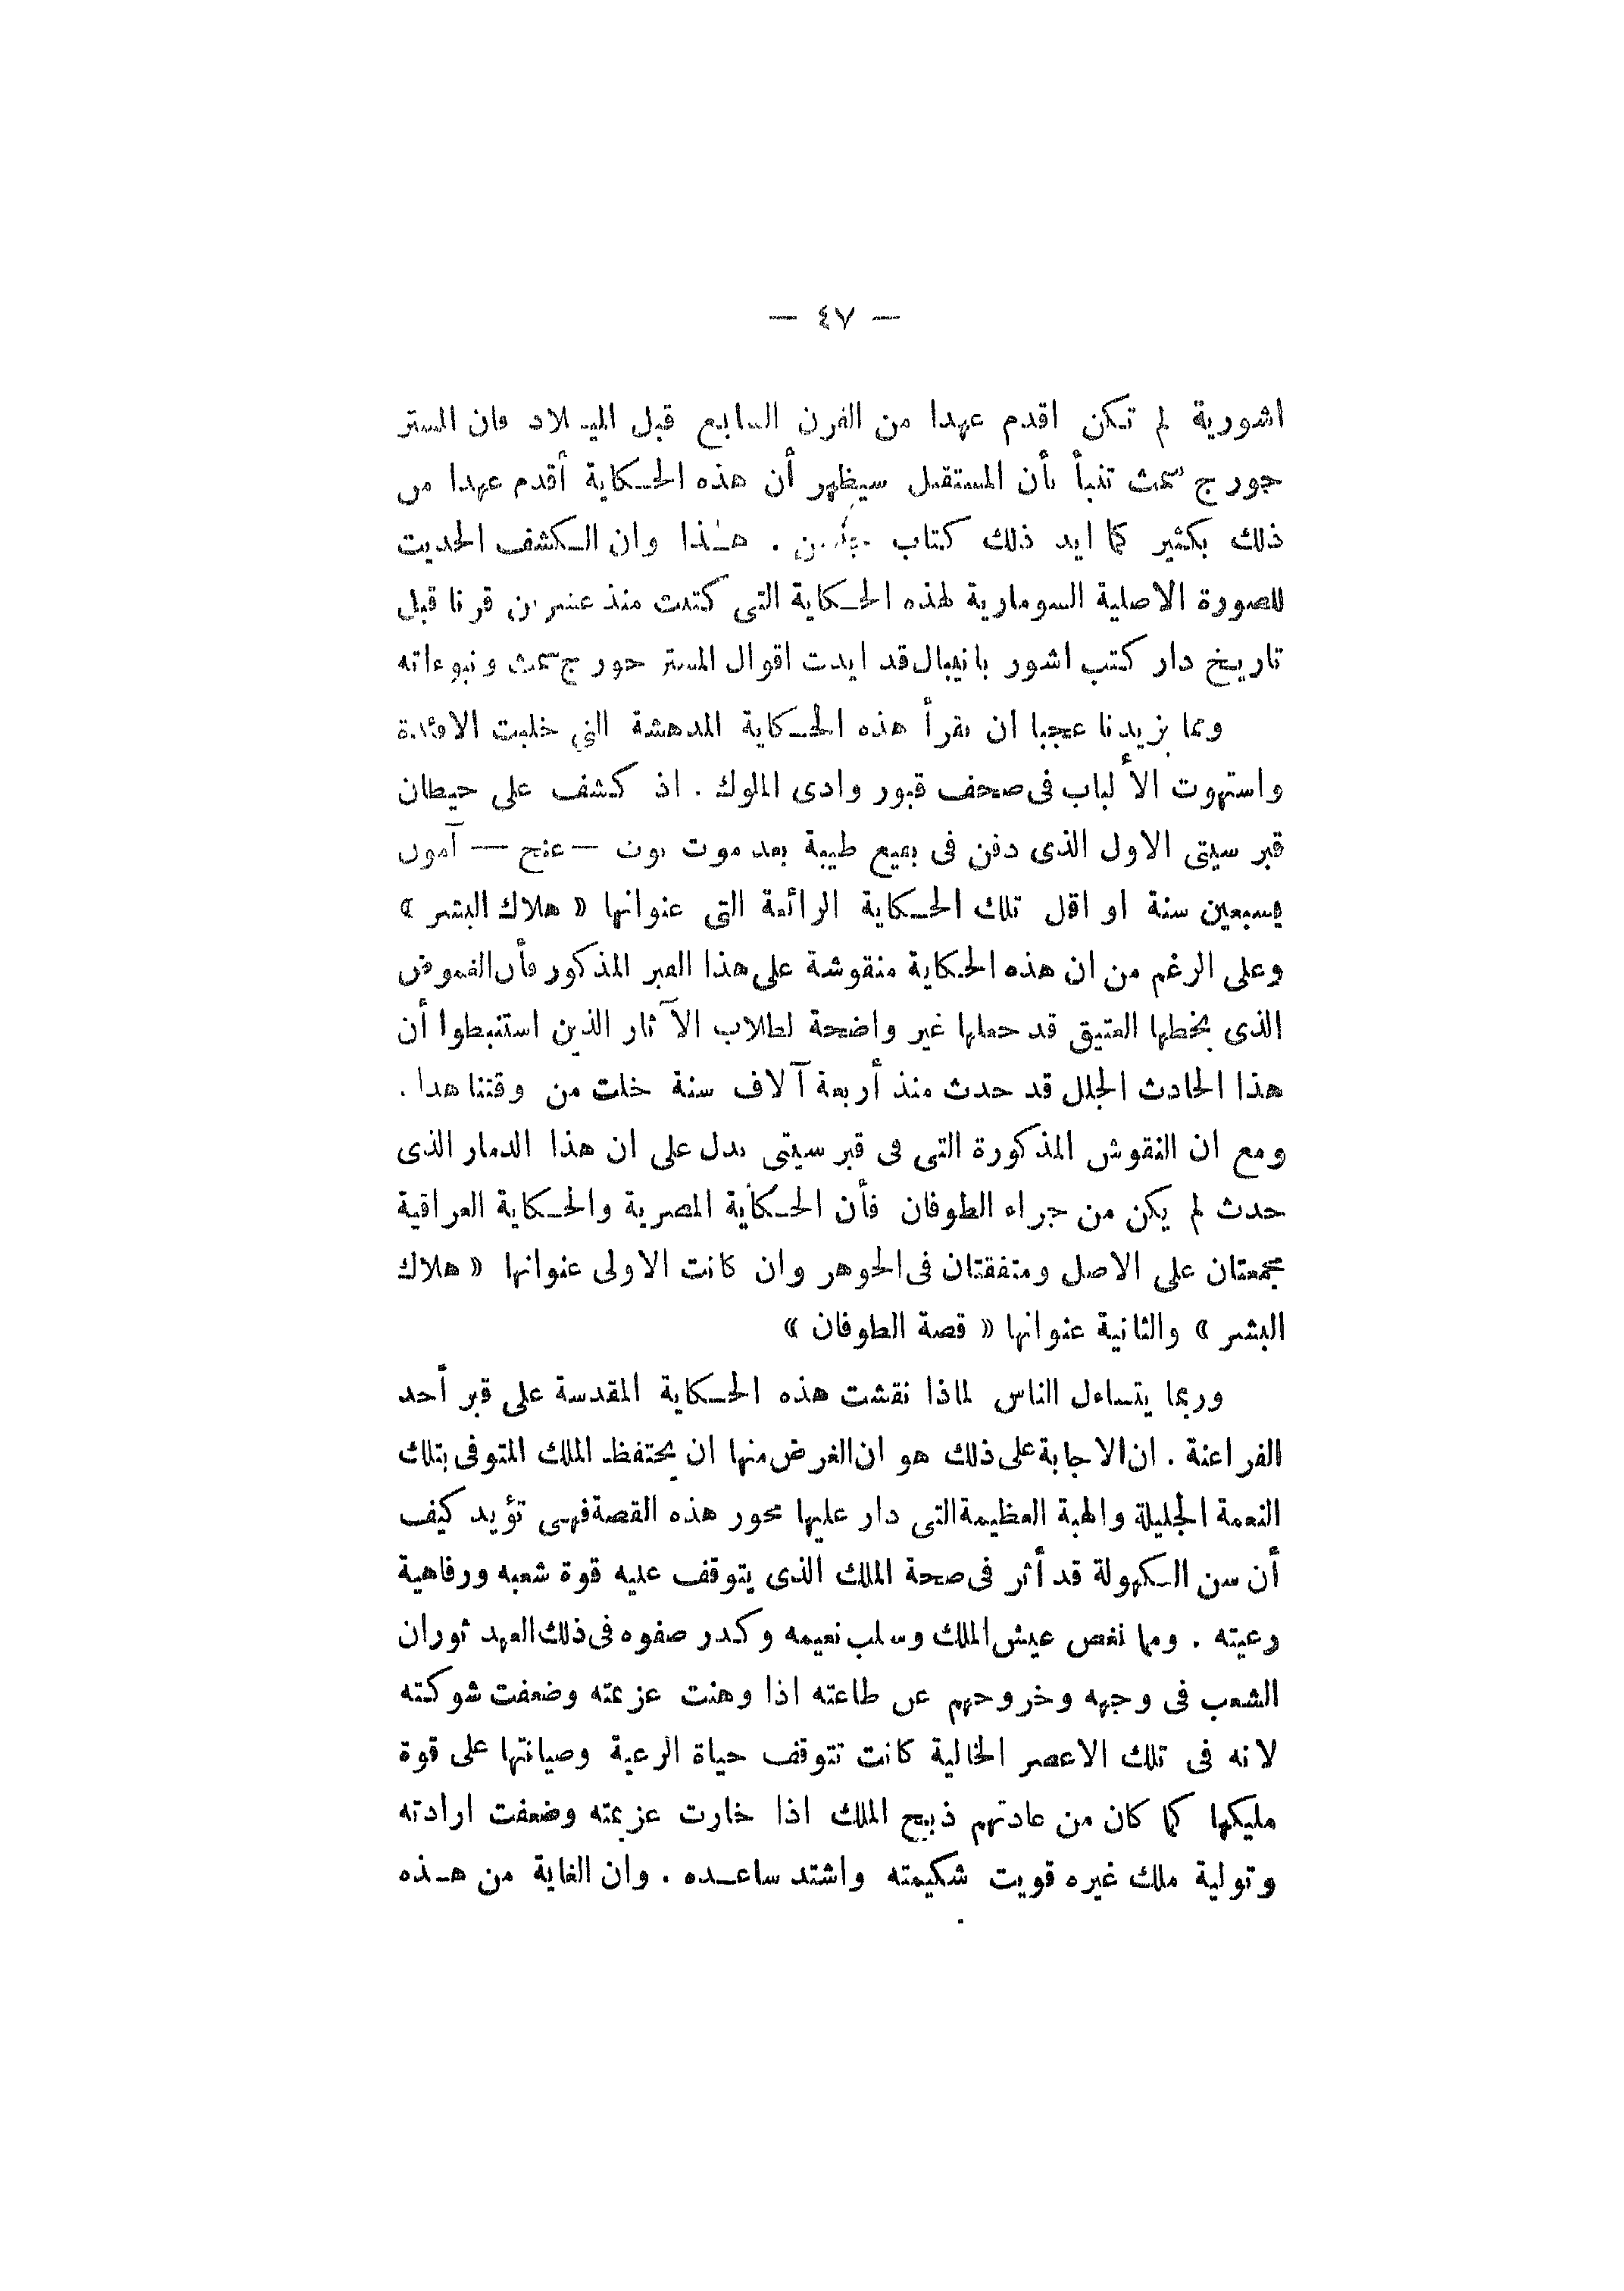 — ٤٧ —
اشورية لم تكن اقدم عهدا من القرن السابع قبل الميلاد فان المستر
جورج سمث تنبأ بأن المستقبل سيظهر أن هذه الحكاية أقدم عهدا من
ذلك بكثير كما ايد ذلك كتاب . هذا وان الكشف الحديث
للصورة الاصلية السومارية لهذه الحكاية التى كتبت منذ عشرين قرنا قبل
تاريخ دار كتب اشور بانيبال قد ايدت اقوال المستر جورج سمث ونبوءاته
ومما يزيدنا عجبا ان نقرأ هذه الحكاية المدهشة التى خلبت الافئدة
واستهوت الألباب فى صحف قبور وادى الملوك . اذ كشف على حيطان
قبر سيتى الاول الذى دفن فى بقيع طيبة بعد موت توت — عنخ — آمون
بسبعين سنة او اقل تلك الحكاية الرائعة التى عنوانها « هلاك البشر »
وعلى الرغم من ان هذه الحكاية منقوشة على هذا القبر المذكور فأن الغموض
الذى بخطها العتيق قد جعلها غير واضحة لطلاب الآثار الذين استنبطوا أن
هذا الحادث الجلل قد حدث منذ أربعة آلاف سنة خلت من وقتنا هذا .
ومع ان النقوش المذكورة التى فى قبر سيتى تدل على ان هذا الدمار الذى
حدث لم يكن من جراء الطوفان فأن الحكاية المصرية والحكاية العراقية
مجمعتان على الاصل ومتفقتان فى الجوهر وان كانت الاولى عنوانها « هلاك
البشر » والثانية عنوانها « قصة الطوفان »
وربما يتساءل الناس لماذا نقشت هذه الحكاية المقدسة على قبر أحد
الفراعنة . ان الاجابة على ذلك هو ان الغرض منها ان يحتفظ الملك المتوفى بتلك
النعمة الجليلة والهبة العظيمة التى دار عليها محور هذه القصة فهى تؤيد كيف
أن سن الكهولة قد أثر فى صحة الملك الذى يتوقف عليه قوة شعبه ورفاهية
رعيته . ومما نغص عيش الملك وسلب نعيمه وكدر صفوه فى ذلك العهد ثوران
الشعب فى وجهه وخروجهم عن طاعته اذا وهنت عزيمته وضعفت شوكته
لانه فى تلك الاعصر الخالية كانت تتوقف حياة الرعية وصيانتها على قوة
مليكها كما كان من عادتهم ذبح الملك اذا خارت عزيمته وضعفت ارادته
وتولية ملك غيره قويت شكيمته واشتد ساعده . وان الغاية من هذه